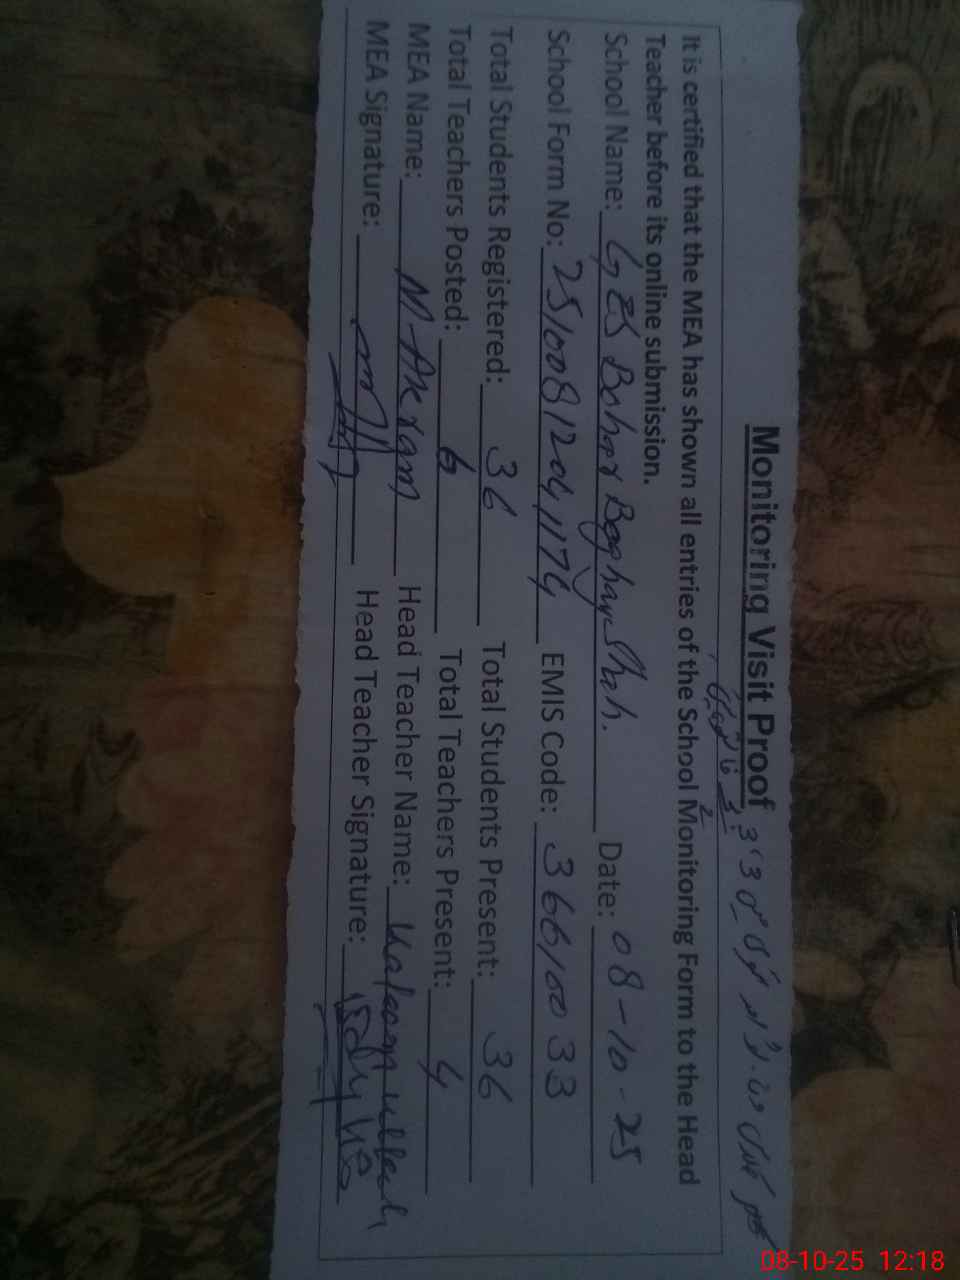 Monitoring Visit Proof
It is certified that the MEA has shown all entries of the School Monitoring Form to the Head
Teacher before its online submission.
School Name: GES Bahar Baghar Shah. Date: 08-10-25
School Form No: 25100812041174 EMIS Code: 36610033
Total Students Registered: 36 Total Students Present: 36
Total Teachers Posted: 6 Total Teachers Present: 4
MEA Name: M-Akram Head Teacher Name: Kaleem ullah
MEA Signature: Head Teacher Signature:
08-10-25 12:18